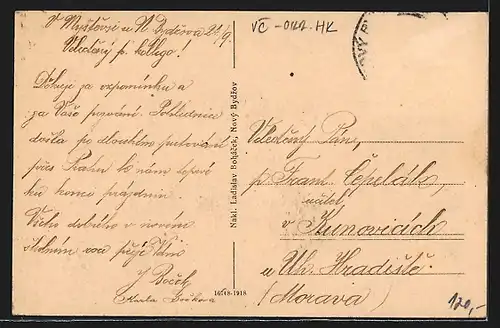 V Myštěvsi u N. Bydžova 21/9.
Velectěný p. kollego!
Děkuji za vzpomínku a
za Vaše pozvání. Pohlednice
došla po dlouhém putování
přes Prahu k nám teprve
ku konci prázdnin.
Všeho dobrého v novém
školním roce přeje Vám
J. Boček
Božková
VČ - OKR. HK
Nakl. Ladislav Soháček, Nový Bydžov
16748-1918
Velectěný Pán,
p. Frant. Čepelák,
učitel,
v Kunovicích
u Uh. Hradiště.
(Morava)
120,-